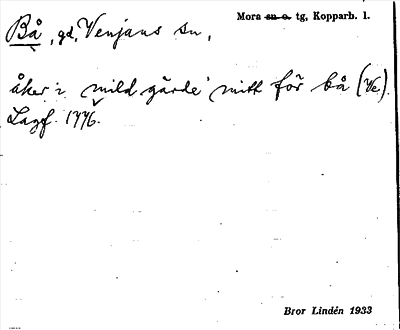 Bå, gd, Venjans sn,
Mora sn o. tg, Kopparb. l.
åker i mild gärde mitt för bå (Ve).
Lagf. 1776.
Bror Lindén 1933